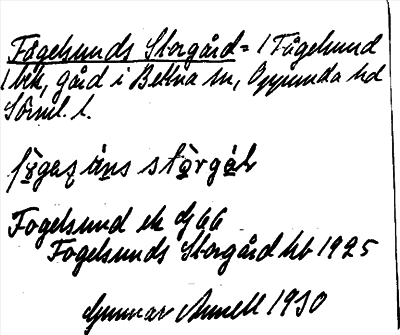 Fågelsunds Storgård = 1 Fågelsund
1 bek, gård i Bettna sn, Oppunda hd
Sörml. l.
Fogelsund ek Gj 66
Fogelsunds Storgård kb 1925
Gunnar Arnell 1930